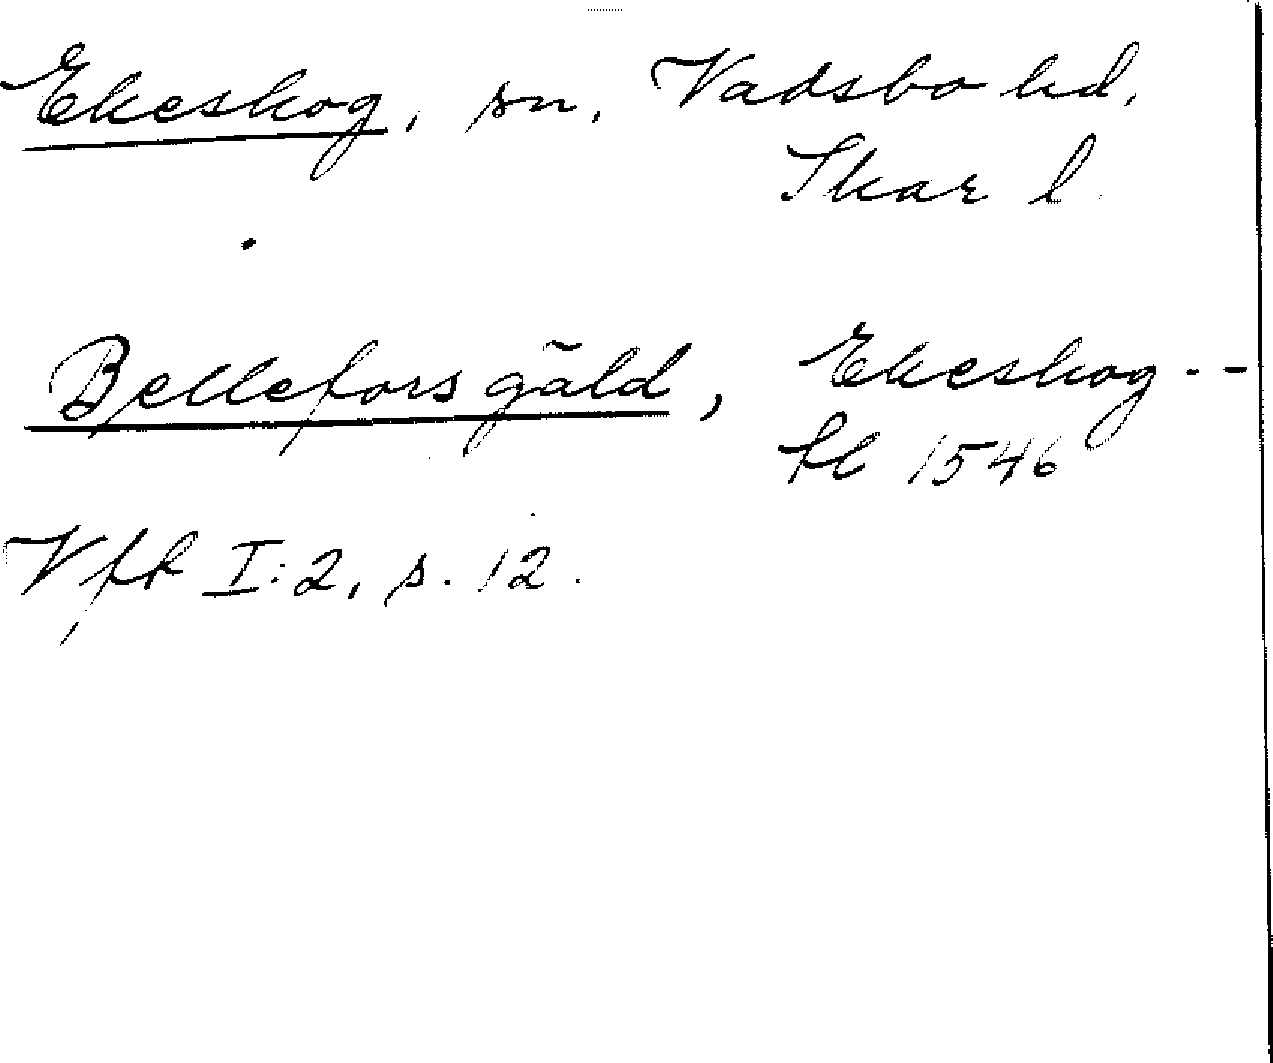 Ekeskog, sn, Vadsbo hd,
Skar l.
Belleforsgäld, Ekeskog --
fl 1546
VfR I:2, s. 12.